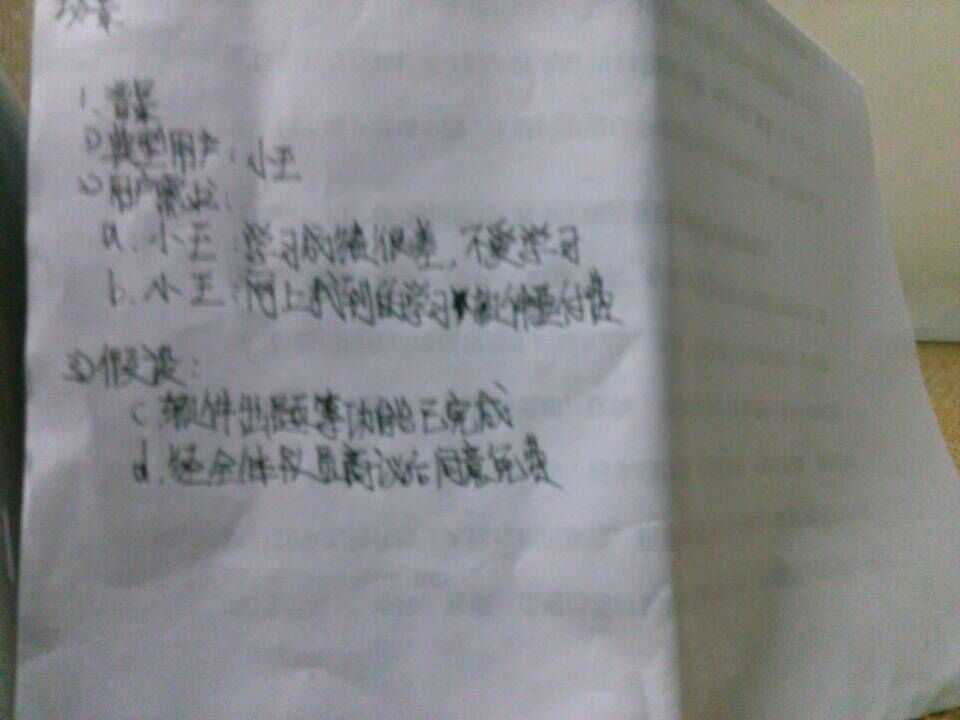 场景
1. 背景
1) 典型用户：小王
2) 用户需求：
a. 小王 学习成绩很差，不爱学习
b. 小王 网上找到的学习软件要付费
3) 假设：
c. 软件出题等功能已完成
d. 经全体成员商议后同意免费